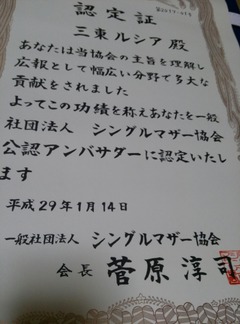 認定証
三東ルシア 殿
あなたは当協会の主旨を理解し
広報として幅広い分野で多大な
貢献をされました
よってこの功績を称えあなたを一般
社団法人 シングルマザー協会
公認アンバサダーに認定いたし
ます
平成29年1月14日
一般社団法人 シングルマザー協会
会長 菅原淳司